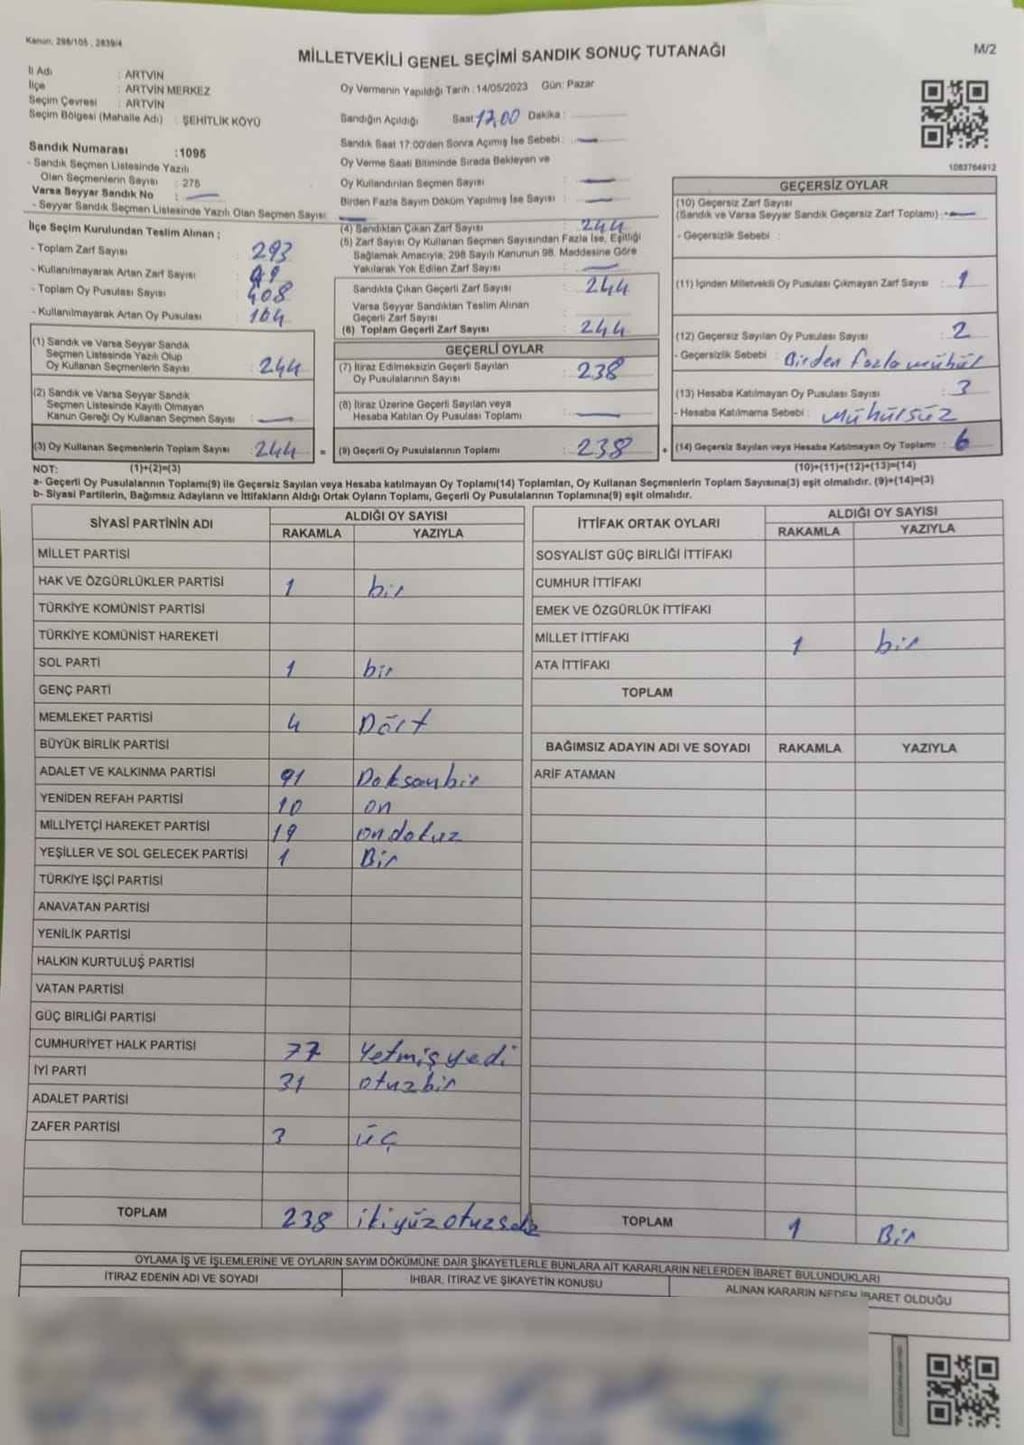 Kanun, 298/105 , 2839/4
MİLLETVEKİLİ GENEL SEÇİMİ SANDIK SONUÇ TUTANAĞI
M/2
İl Adı : ARTVİN
İlçe : ARTVİN MERKEZ
Seçim Çevresi : ARTVİN
Seçim Bölgesi (Mahalle Adı) : ŞEHİTLİK KÖYÜ
Sandık Numarası :1095
- Sandık Seçmen Listesinde Yazılı
Olan Seçmenlerin Sayısı : 278
Varsa Seyyar Sandık No :
- Seyyar Sandık Seçmen Listesinde Yazılı Olan Seçmen Sayısı:
Oy Vermenin Yapıldığı Tarih :14/05/2023 Gün: Pazar
Sandığın Açıldığı Saat:17,00 Dakika :
Sandık Saat 17:00'den Sonra Açımış İse Sebebi:
Oy Verme Saati Bitiminde Sırada Bekleyen ve
Oy Kullandırılan Seçmen Sayısı :
Birden Fazla Sayım Döküm Yapılmış İse Sayısı :
1083764912
İlçe Seçim Kurulundan Teslim Alınan ;
- Toplam Zarf Sayısı : 293
- Kullanılmayarak Artan Zarf Sayısı : 49
- Toplam Oy Pusulası Sayısı : 408
- Kullanılmayarak Artan Oy Pusulası : 164
(1) Sandık ve Varsa Seyyar Sandık
Seçmen Listesinde Yazılı Olup
Oy Kullanan Seçmenlerin Sayısı : 244
(2) Sandık ve Varsa Seyyar Sandık
Seçmen Listesinde Kayıtlı Olmayan
Kanun Gereği Oy Kullanan Seçmen Sayısı :
(3) Oy Kullanan Seçmenlerin Toplam Sayısı : 244 =
(4) Sandıktan Çıkan Zarf Sayısı : 244
(5) Zarf Sayısı Oy Kullanan Seçmen Sayısından Fazla İse, Eşitliği
Sağlamak Amacıyla; 298 Sayılı Kanunun 98. Maddesine Göre
Yakılarak Yok Edilen Zarf Sayısı :
Sandıkta Çıkan Geçerli Zarf Sayısı : 244
Varsa Seyyar Sandıktan Teslim Alınan
Geçerli Zarf Sayısı :
(6) Toplam Geçerli Zarf Sayısı : 244
GEÇERLİ OYLAR
(7) İtiraz Edilmeksizin Geçerli Sayılan
Oy Pusulalarının Sayısı : 238
(8) İtiraz Üzerine Geçerli Sayılan veya
Hesaba Katılan Oy Pusulası Toplamı :
(9) Geçerli Oy Pusulalarının Toplamı : 238 +
GEÇERSİZ OYLAR
(10) Geçersiz Zarf Sayısı
(Sandık ve Varsa Seyyar Sandık Geçersiz Zarf Toplamı) :
- Geçersizlik Sebebi :
(11) İçinden Milletvekili Oy Pusulası Çıkmayan Zarf Sayısı : 1
(12) Geçersiz Sayılan Oy Pusulası Sayısı : 2
- Geçersizlik Sebebi : Birden fazla mühür
(13) Hesaba Katılmayan Oy Pusulası Sayısı : 3
- Hesaba Katılmama Sebebi : mühürsüz
(14) Geçersiz Sayılan veya Hesaba Katılmayan Oy Toplamı : 6
NOT: (1)+(2)=(3) (10)+(11)+(12)+(13)=(14)
a- Geçerli Oy Pusulalarının Toplamı(9) ile Geçersiz Sayılan veya Hesaba katılmayan Oy Toplamı(14) Toplamları, Oy Kullanan Seçmenlerin Toplam Sayısına(3) eşit olmalıdır. (9)+(14)=(3)
b- Siyasi Partilerin, Bağımsız Adayların ve İttifakların Aldığı Ortak Oyların Toplamı, Geçerli Oy Pusulalarının Toplamına(9) eşit olmalıdır.
SİYASİ PARTİNİN ADI ALDIĞI OY SAYISI
RAKAMLA YAZIYLA
MİLLET PARTİSİ
HAK VE ÖZGÜRLÜKLER PARTİSİ 1 bir
TÜRKİYE KOMÜNİST PARTİSİ
TÜRKİYE KOMÜNİST HAREKETİ
SOL PARTİ 1 bir
GENÇ PARTİ
MEMLEKET PARTİSİ 4 Dört
BÜYÜK BİRLİK PARTİSİ
ADALET VE KALKINMA PARTİSİ 91 Doksanbir
YENİDEN REFAH PARTİSİ 10 on
MİLLİYETÇİ HAREKET PARTİSİ 19 ondokuz
YEŞİLLER VE SOL GELECEK PARTİSİ 1 Bir
TÜRKİYE İŞÇİ PARTİSİ
ANAVATAN PARTİSİ
YENİLİK PARTİSİ
HALKIN KURTULUŞ PARTİSİ
VATAN PARTİSİ
GÜÇ BİRLİĞİ PARTİSİ
CUMHURİYET HALK PARTİSİ 77 Yetmişyedi
İYİ PARTİ 31 otuzbir
ADALET PARTİSİ
ZAFER PARTİSİ 3 üç
TOPLAM 238 ikiyüzotuzsekiz
İTTİFAK ORTAK OYLARI ALDIĞI OY SAYISI
RAKAMLA YAZIYLA
SOSYALİST GÜÇ BİRLİĞİ İTTİFAKI
CUMHUR İTTİFAKI
EMEK VE ÖZGÜRLÜK İTTİFAKI
MİLLET İTTİFAKI 1 bir
ATA İTTİFAKI
TOPLAM
BAĞIMSIZ ADAYIN ADI VE SOYADI RAKAMLA YAZIYLA
ARİF ATAMAN
TOPLAM 1 Bir
OYLAMA İŞ VE İŞLEMLERİNE VE OYLARIN SAYIM DÖKÜMÜNE DAİR ŞİKAYETLERLE BUNLARA AİT KARARLARIN NELERDEN İBARET BULUNDUKLARI
İTİRAZ EDENİN ADI VE SOYADI İHBAR, İTİRAZ VE ŞİKAYETİN KONUSU ALINAN KARARIN NEDEN İBARET OLDUĞU